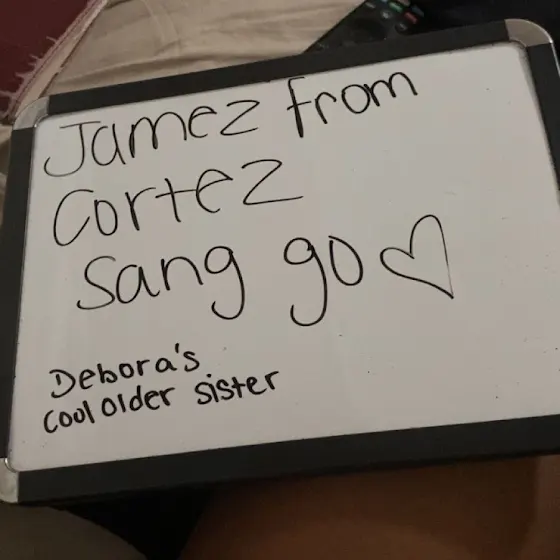 Jamez from
Cortez
Sang go♡
Debora's
cool older sister